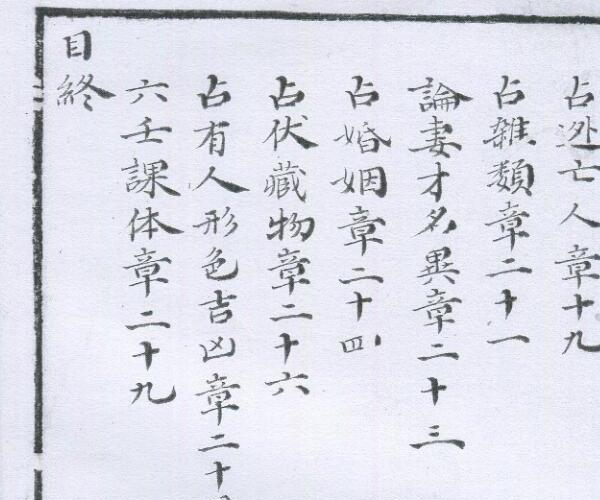 占逃亡人章十九
占雜類章二十一
論妻才名異章二十三
占婚姻章二十四
占伏藏物章二十六
占有人形色吉凶章二十
六壬課体章二十九
目終